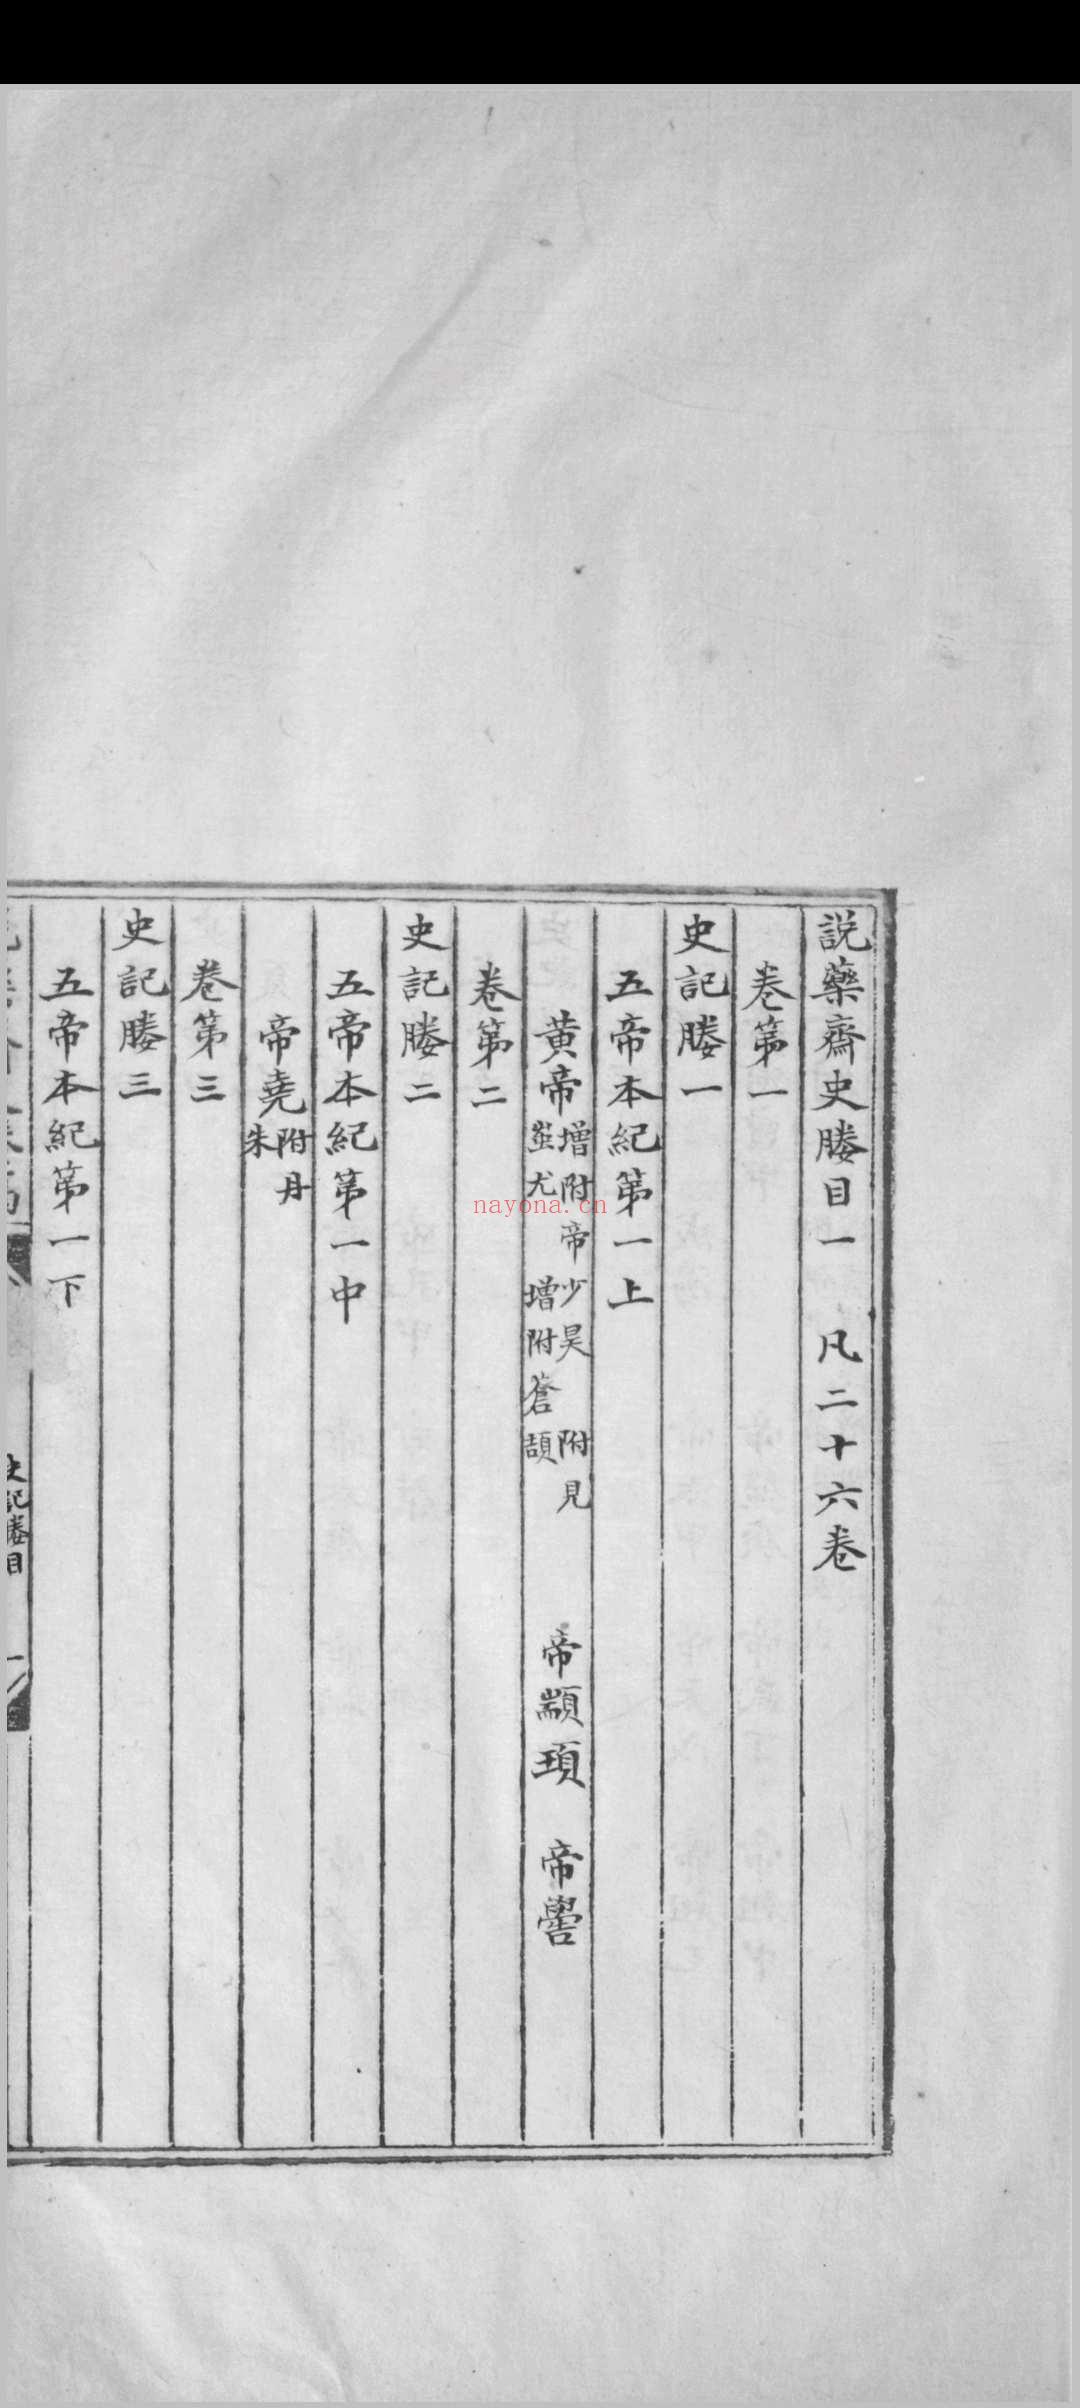 説藥齋史賸目一　凡二十六卷
卷第一
史記賸一
五帝本紀第一上
黄帝增附帝少昊附見蚩尤增附蒼頡　帝顓頊　帝嚳
卷第二
史記賸二
五帝本紀第一中
帝堯附丹朱
卷第三
史記賸三
五帝本紀第一下
史記賸目
一
nayona.cn